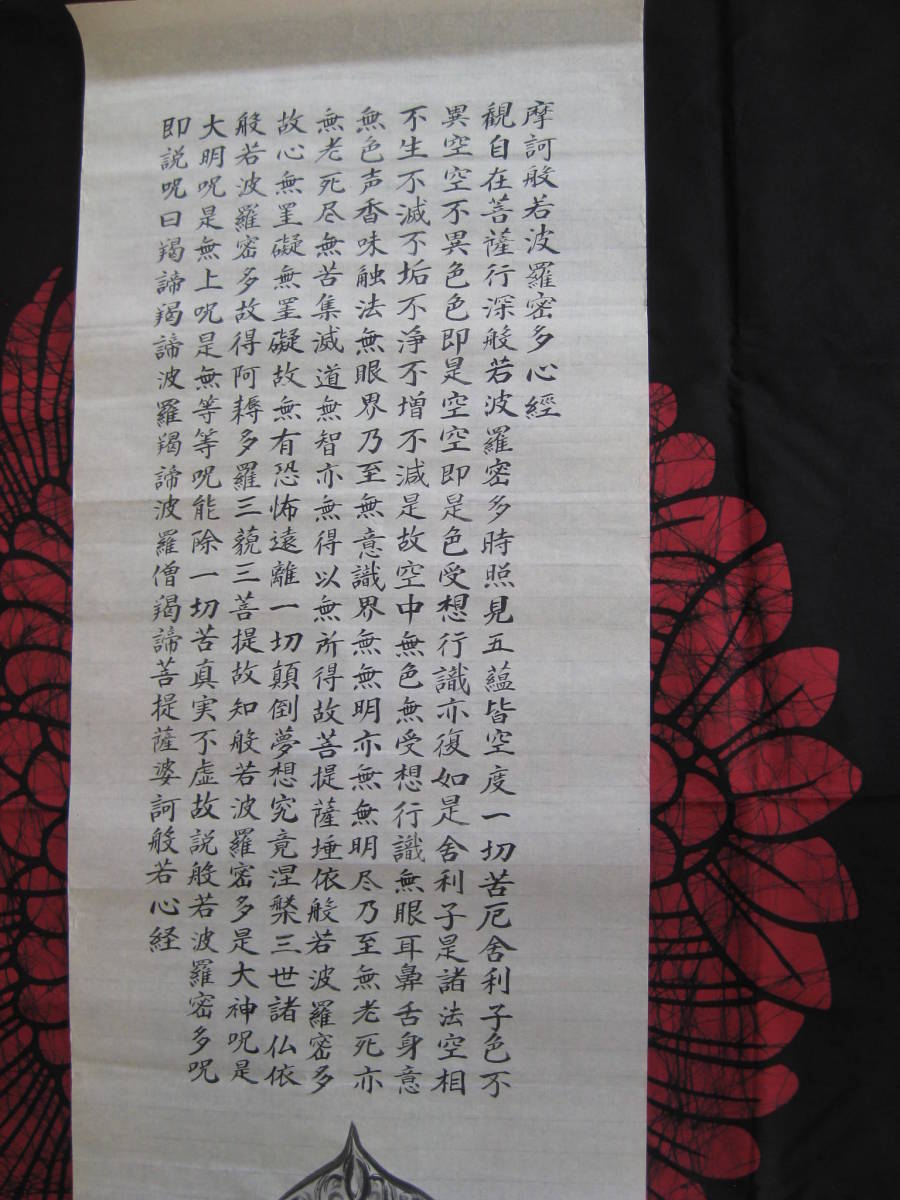 摩訶般若波羅密多心經
觀自在菩薩行深般若波羅密多時照見五蘊皆空度一切苦厄舍利子色不
異空空不異色色即是空空即是色受想行識亦復如是舍利子是諸法空相
不生不滅不垢不淨不增不減是故空中無色無受想行識無眼耳鼻舌身意
無色声香味触法無眼界乃至無意識界無無明亦無無明尽乃至無老死亦
無老死尽無苦集滅道無智亦無得以無所得故菩提薩埵依般若波羅密多
故心無罣礙無罣礙故無有恐怖遠離一切顛倒夢想究竟涅槃三世諸仏依
般若波羅密多故得阿耨多羅三藐三菩提故知般若波羅密多是大神呪是
大明呪是無上呪是無等等呪能除一切苦真実不虚故説般若波羅密多呪
即説呪曰羯諦羯諦波羅羯諦波羅僧羯諦菩提薩婆訶般若心経